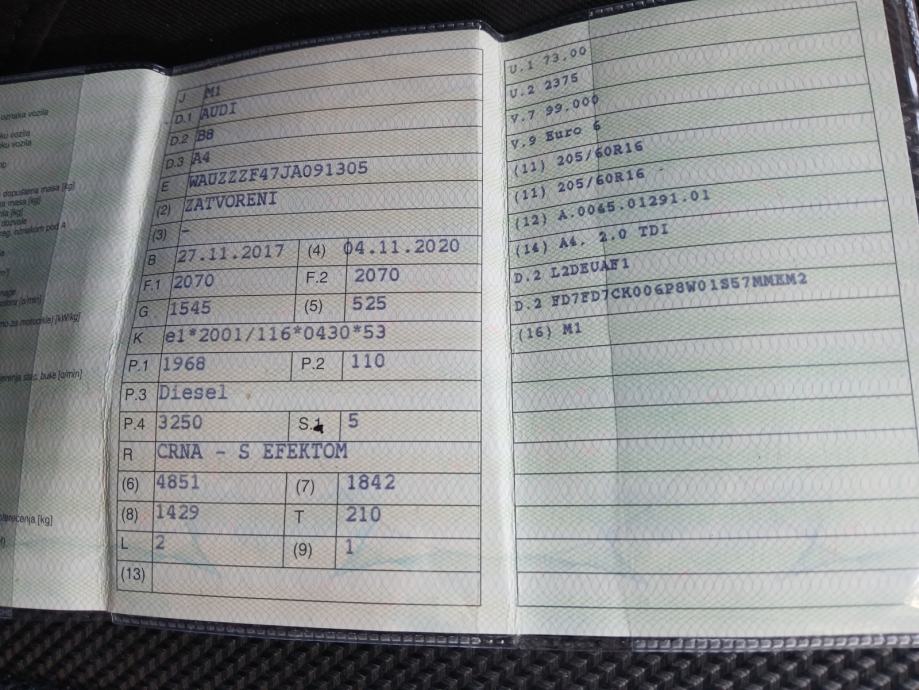 oznaka vozila
ku vozila
ku vozila
dopuštena masa [kg]
masa [kg]
[kg]
dozvole
oznakom pod 4
J M1
D.1 AUDI
D.2 B8
D.3 A4
E WAUZZZF47JA091305
(2) ZATVORENI
(3) -
B 27.11.2017 (4) 04.11.2020
F.1 2070 F.2 2070
G 1545 (5) 525
K e1*2001/116*0430*53
P.1 1968 P.2 110
P.3 Diesel
P.4 3250 S.1 5
R CRNA - S EFEKTOM
(6) 4851 (7) 1842
(8) 1429 T 210
L 2 (9) 1
(13)
U.1 73,00
U.2 2375
V.7 99.000
V.9 Euro 6
(11) 205/60R16
(11) 205/60R16
(12) A.0045.01291.01
(14) A4, 2.0 TDI
D.2 L2DEUAF1
D.2 FD7FD7CK006P8W01S57MMEM2
(16) M1